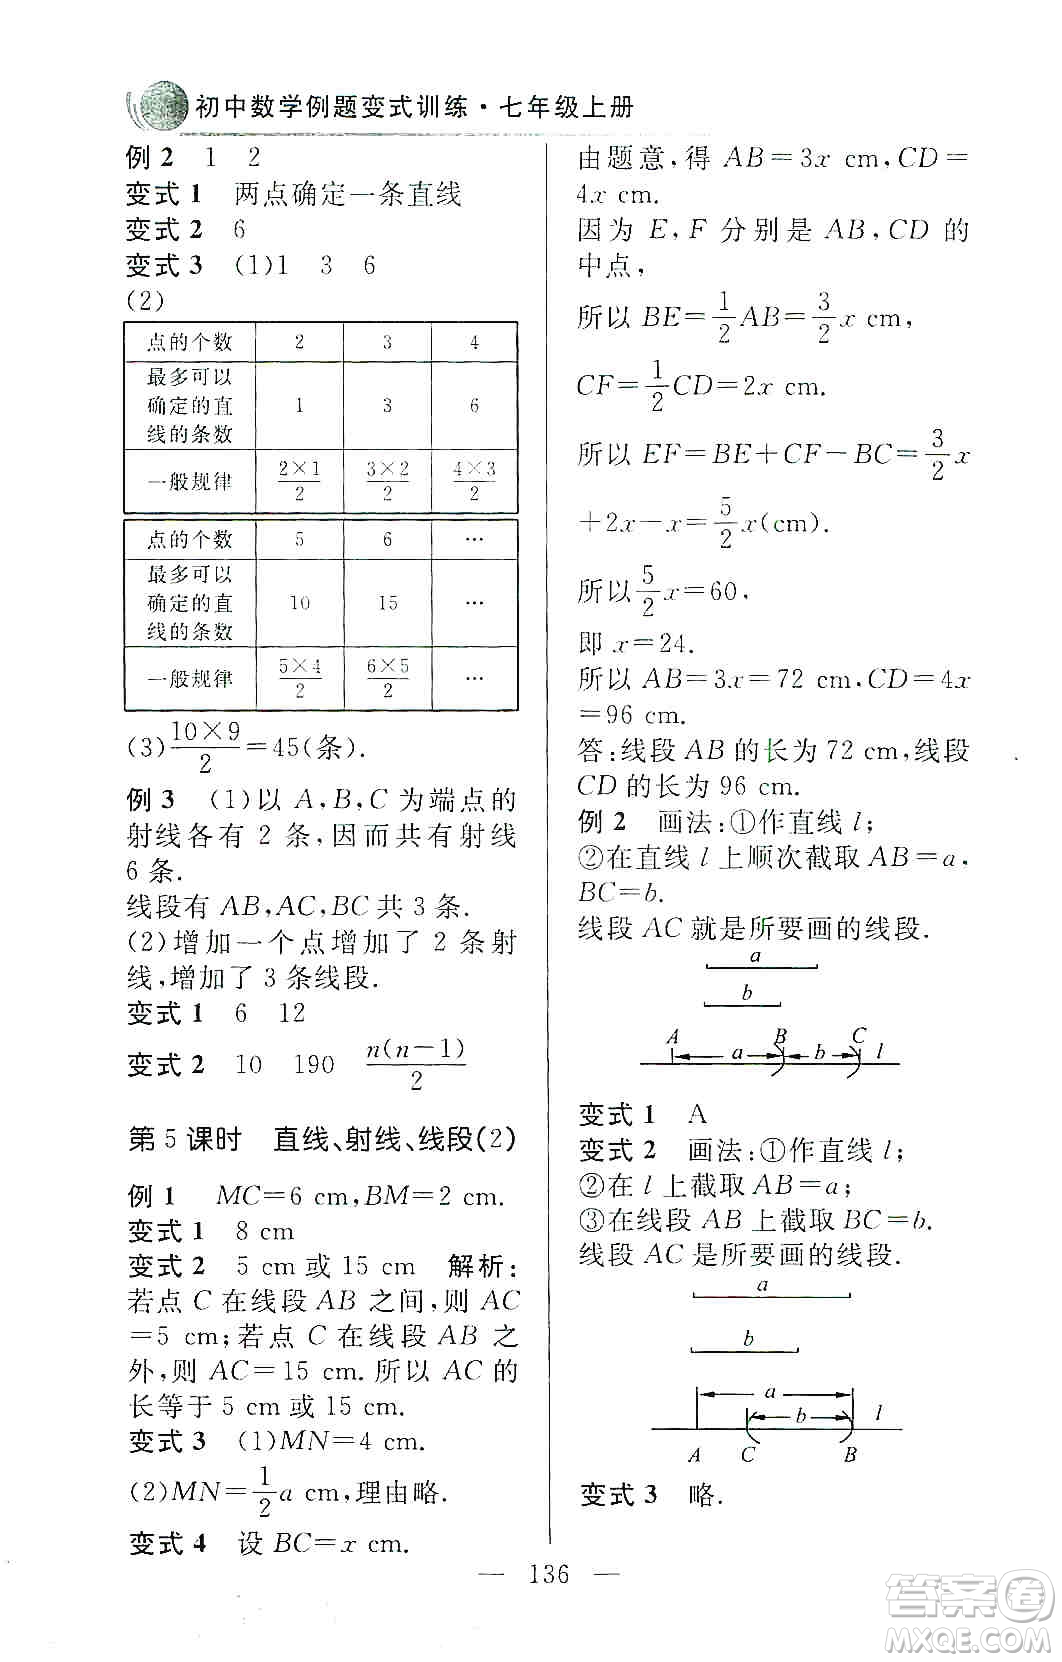 初中数学例题变式训练·七年级上册
例2 1 2
变式1 两点确定一条直线
变式2 6
变式3 (1)1 3 6
(2)
点的个数 2 3 4
最多可以
确定的直 1 3 6
线的条数
一般规律 2×1/2 3×2/2 4×3/2
点的个数 5 6 …
最多可以
确定的直 10 15 …
线的条数
一般规律 5×4/2 6×5/2 …
(3)10×9/2=45(条).
例3 (1)以 A,B,C 为端点的
射线各有 2 条,因而共有射线
6 条.
线段有 AB,AC,BC 共 3 条.
(2)增加一个点增加了 2 条射
线,增加了 3 条线段.
变式1 6 12
变式2 10 190 n(n-1)/2
第5课时 直线、射线、线段(2)
例1 MC=6 cm,BM=2 cm.
变式1 8 cm
变式2 5 cm 或 15 cm 解析:
若点 C 在线段 AB 之间,则 AC
=5 cm;若点 C 在线段 AB 之
外,则 AC=15 cm.所以 AC 的
长等于 5 cm 或 15 cm.
变式3 (1)MN=4 cm.
(2)MN=1/2a cm,理由略.
变式4 设 BC=x cm.
由题意,得 AB=3x cm,CD=
4x cm.
因为 E,F 分别是 AB,CD 的
中点,
所以 BE=1/2AB=3/2x cm,
CF=1/2CD=2x cm.
所以 EF=BE+CF-BC=3/2x
+2x-x=5/2x(cm).
所以5/2x=60,
即 x=24.
所以 AB=3x=72 cm,CD=4x
=96 cm.
答:线段 AB 的长为 72 cm,线段
CD 的长为 96 cm.
例2 画法:①作直线 l;
②在直线 l 上顺次截取 AB=a,
BC=b.
线段 AC 就是所要画的线段.
a
b
A B C
a b l
变式1 A
变式2 画法:①作直线 l;
②在 l 上截取 AB=a;
③在线段 AB 上截取 BC=b.
线段 AC 是所要画的线段.
a
b
a
b l
A C B
变式3 略.
— 136 —
作业精灵
MXQE.COM